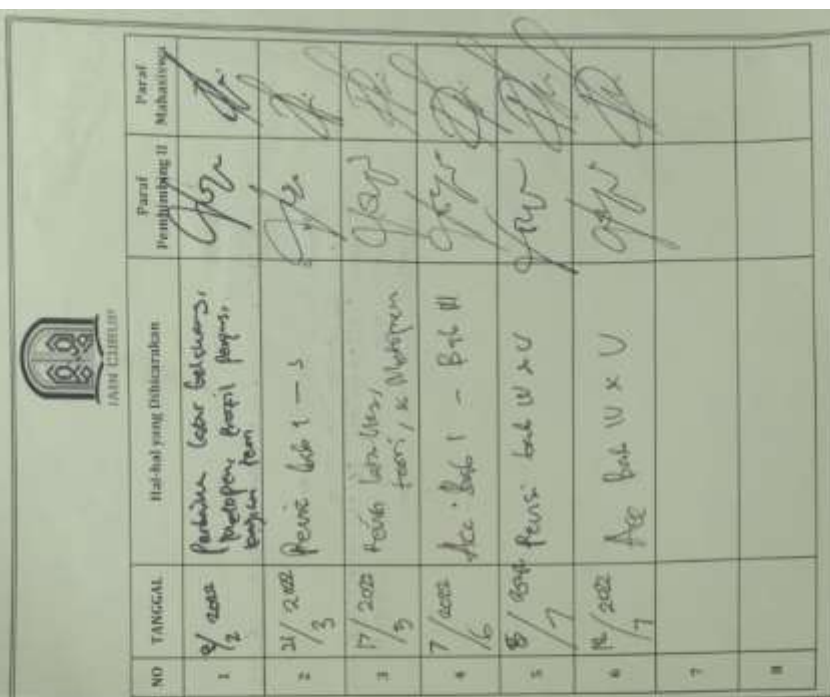 IAIN CURUP
NO TANGGAL Hal-hal yang Dibicarakan Paraf Pembimbing II Paraf Mahasiswa
1 8/2 2022 Perbaiki latar belakang,
metopen, profil
teori
2 21/3 2022 Revisi bab 1 - 3
3 17/5 2022 Revisi
teori, & Metopen
4 7/6 2022 Acc Bab I - Bab III
5 8/7 2022 Revisi bab IV & V
6 18/7 2022 Acc Bab IV & V
7
8